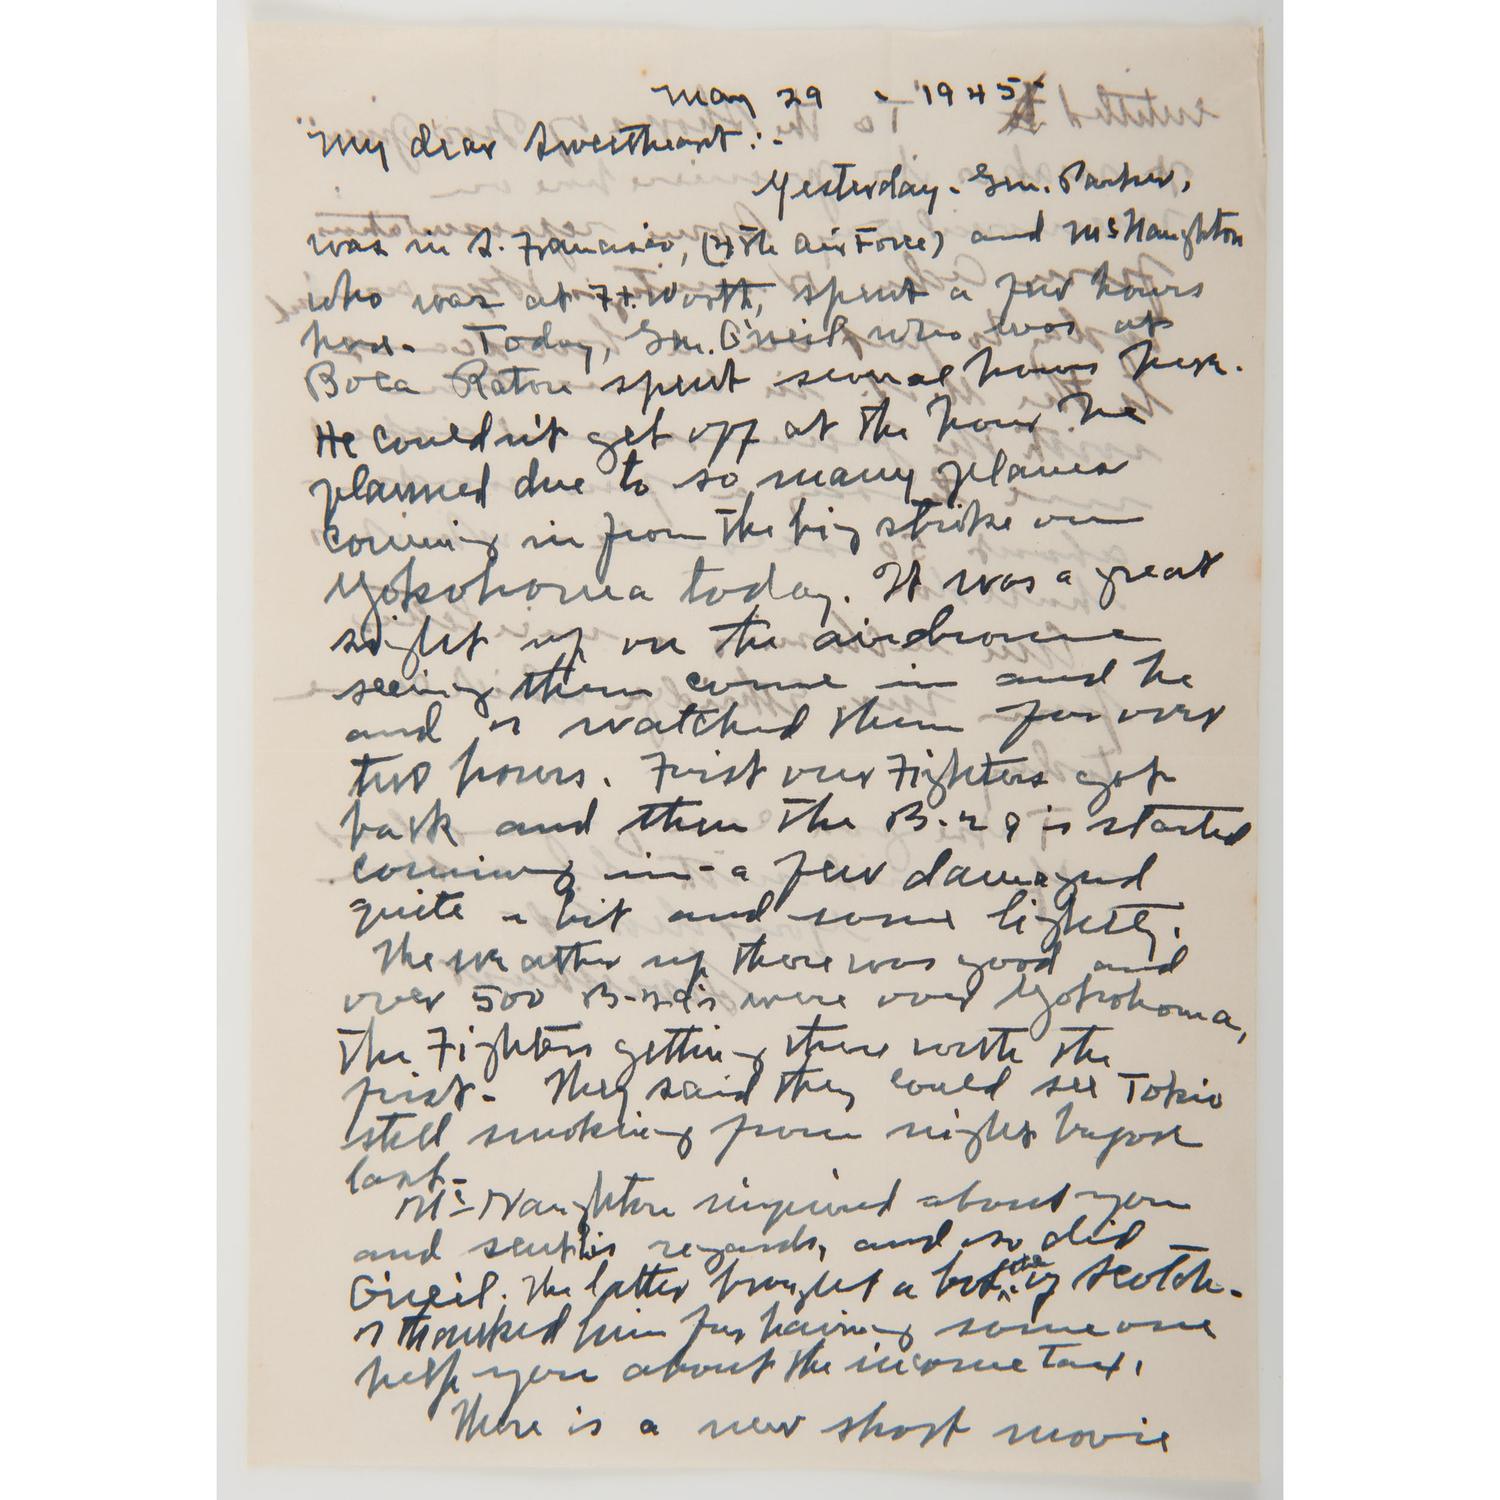 May 29 - 1945
My dear Sweetheart:-
Yesterday - Gen. Parker,
was in S. Francisco, (4th Air Force) and McNaughton
who was at Ft. Worth, spent a few hours
here. Today, Gen. O'neil who was at
Boca Raton spent several hours here.
He couldn't get off at the hour he
planned due to so many planes
coming in from the big strike on
Yokohoma today. It was a great
sight up on the airdrome
seeing them come in and he
and I watched them for over
two hours. First our Fighters got
back and then the B-29's started
coming in - a few damaged
quite a bit and some lightly.
The weather up there was good and
over 500 B-29's were over Yokohoma,
the Fighters getting there with the
first - They said they could see Tokio
still smoking from night before
last -
McNaughton inquired about you
and sent his regards, and so did
O'neil. The latter brought a bottle of Scotch -
I thanked him for having someone
help you about the income Tax.
There is a new short movie